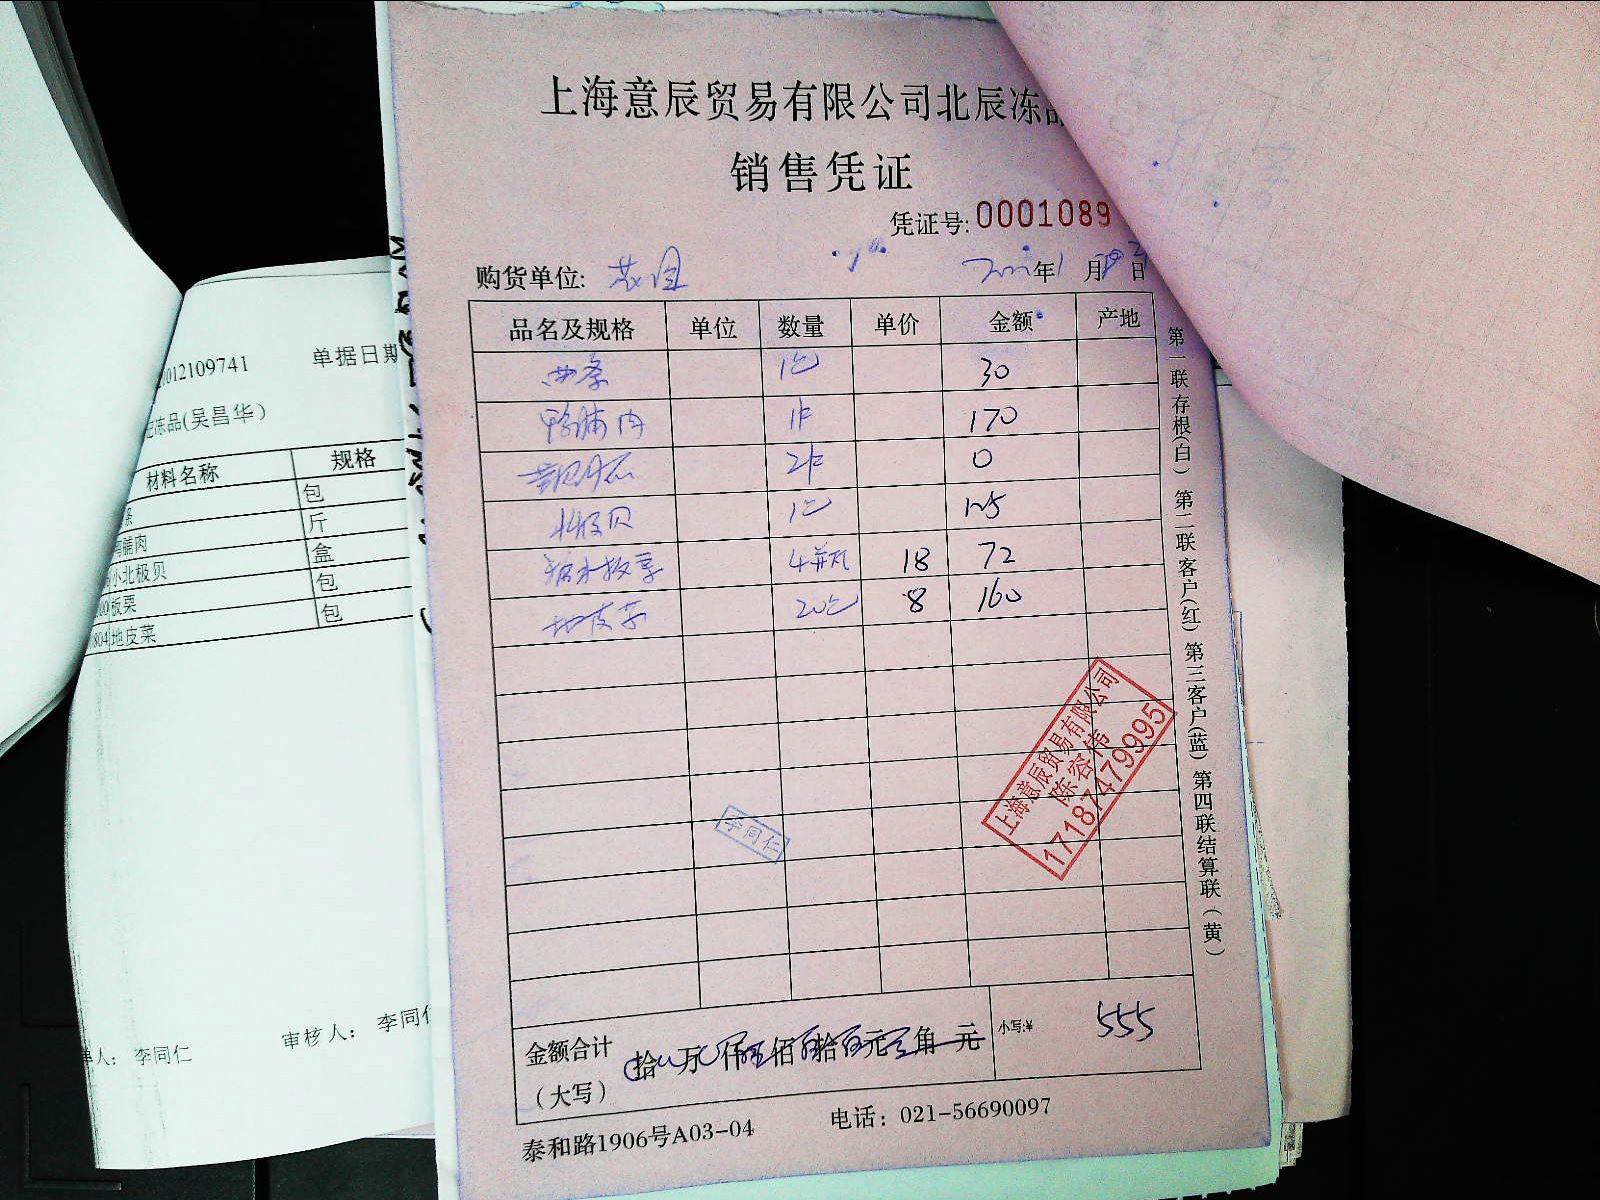 上海意辰贸易有限公司北辰冻品
销售凭证
凭证号: 0001089
购货单位:
年1月 日
品名及规格 单位 数量 单价 金额 产地
西条 1包 30
鸭脯肉 1件 170
2件 0
北极贝 1包 125
糖水板栗 4瓶 18 72
地皮菜 20包 8 160
第一联存根(白) 第二联客户(红) 第三客户(蓝) 第四联结算联(黄)
上海意辰贸易有限公司
陈容伟
17187479995
李同仁
金额合计 拾 万 仟 佰 拾 元 角 元 小写:¥ 555
(大写)
泰和路1906号A03-04 电话: 021-56690097
012109741 单据日期
冻品(吴昌华)
材料名称 规格
条 包
脯肉 斤
小北极贝 盒
板栗 包
804 地皮菜 包
单人: 李同仁 审核人: 李同仁